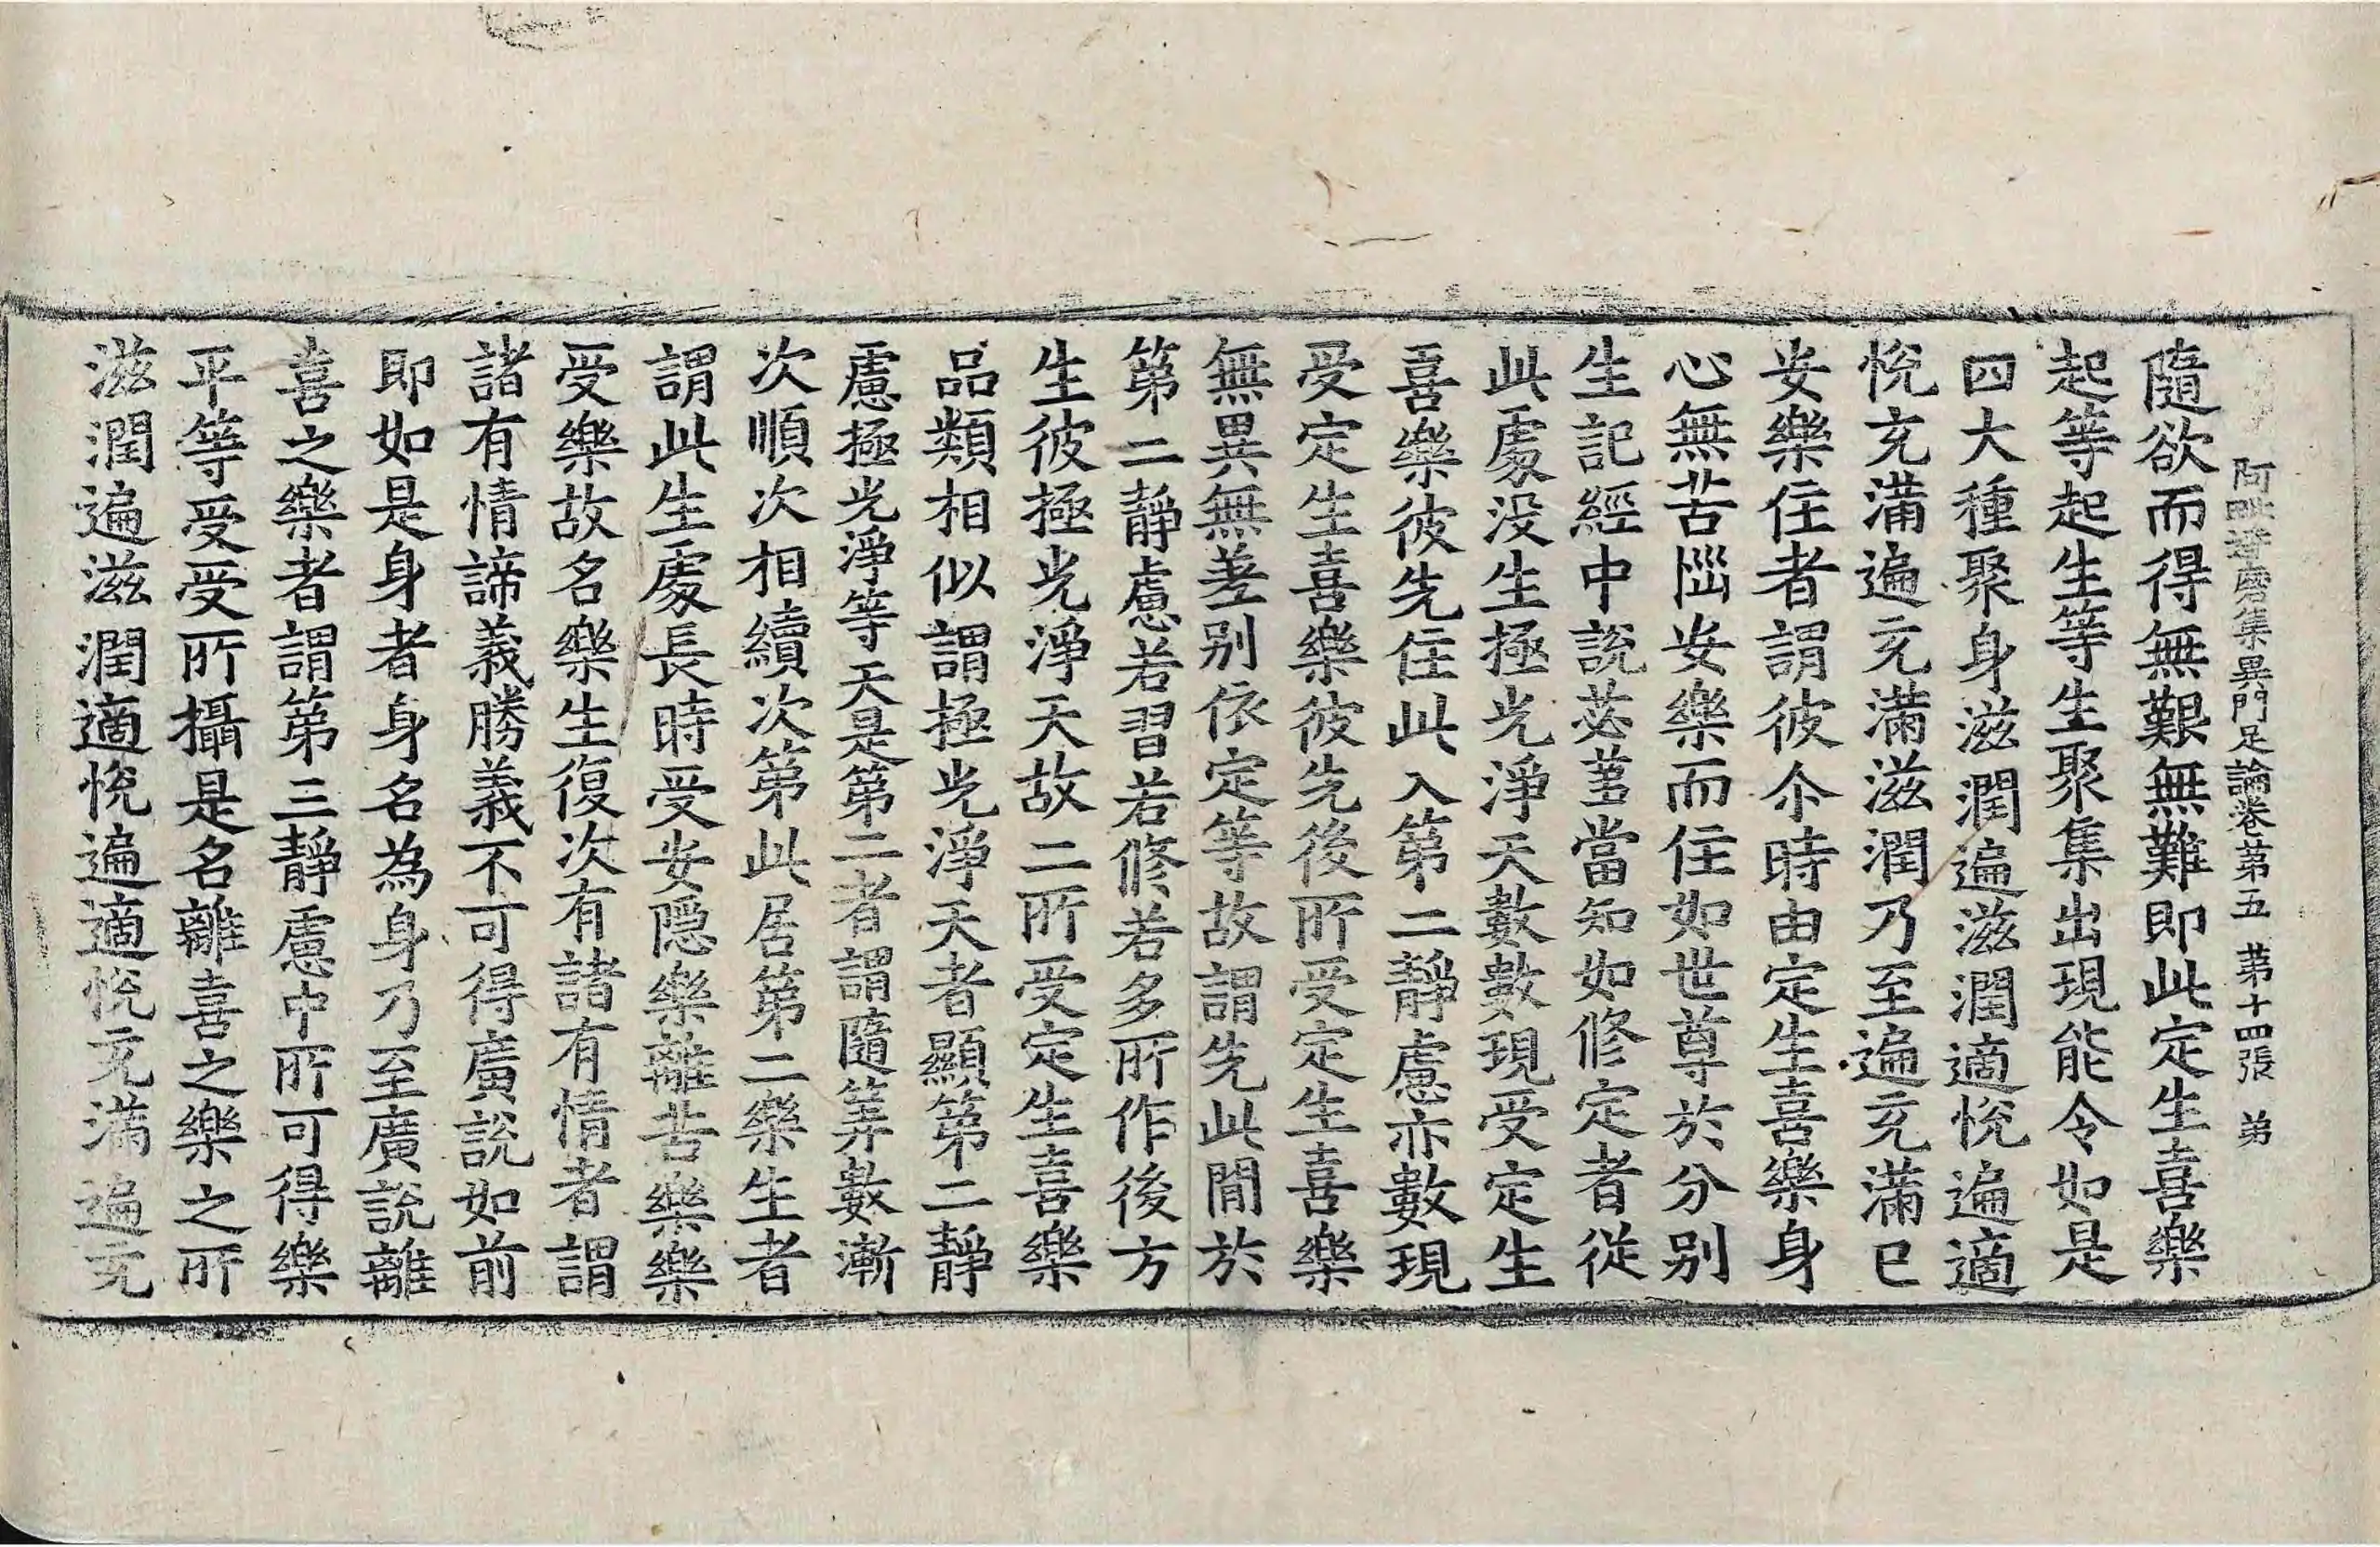 阿毗達磨集異門足論卷第五 第十四張 弟
隨欲而得無艱無難即此定生喜樂
起等起生等生聚集出現能令如是
四大種聚身滋潤遍滋潤適悅遍適
悅充滿遍充滿滋潤乃至遍充滿已
安樂住者謂彼尒時由定生喜樂身
心無苦惱安樂而住如世尊於分別
生記經中說苾蒭當知如修定者從
此處沒生極光淨天數數現受定生
喜樂彼先住此入第二靜慮亦數現
受定生喜樂彼先後所受定生喜樂
無異無差別依定等故謂先此閒於
第二靜慮若習若修若多所作後方
生彼極光淨天故二所受定生喜樂
品類相似謂極光淨天者顯第二靜
慮極光淨等天是第二者謂隨筭數漸
次順次相續次第此居第二樂生者
謂此生處長時受安隱樂離苦樂樂
受樂故名樂生復次有諸有情者謂
諸有情諦義勝義不可得廣說如前
即如是身者身名為身乃至廣說離
喜之樂者謂第三靜慮中所可得樂
平等受受所攝是名離喜之樂之所
滋潤遍滋潤適悅遍適悅充滿遍充